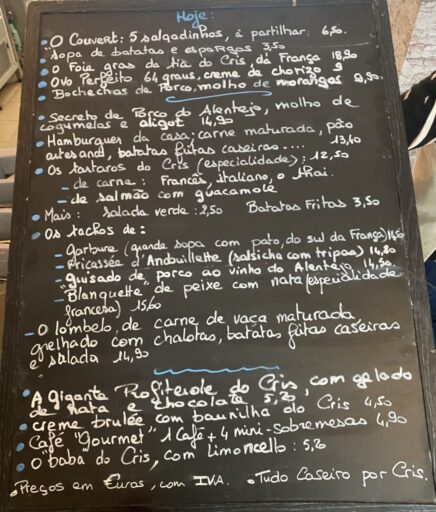 Hoje:
O Couvert: 5 salgadinhos, à partilhar 6,50.
Sopa de batatas e espargos 3,50
Foie gras da tia do Cris, da França 18,90
Ovo Perfeito 64 graus, creme de chorizo 9
Bochechas de Porco, molho de morangos 9,90.
Secreto de Porco do Alentejo, molho de
cogumelos e aligot 14,90
Hamburguer da casa, carne maturada, pão
artesanal, batatas fritas caseiras .... 13,40
Os tartaros do Cris (especialidade): 12,50
- de carne: Francês, italiano, o thai.
- de salmão com guacamole
Mais: salada verde: 2,50 Batatas Fritas 3,50
Os tachos de:
- Garbure (grande sopa com pato, do sul da França)
- Fricassée d'Andouillette (salsicha com tripas) 14,80
- "guisado" de porco ao vinho do Alentejo 14,50
- Blanquette de peixe com nata (especialidade
francesa) 15,60
- O lombelo, de carne de vaça maturada,
grelhado com chalotas, batatas fritas caseiras
e salada 14,90
A gigante Profiterole do Cris, com gelado
de nata e chocolate 5,20
creme brulée com baunilha do Cris 4,50
Café "Gourmet" 1 Café + 4 mini-sobremesas 4,90
O "baba" do Cris, com Limoncello: 5,20
Preços em Euros, com IVA. Tudo Caseiro por Cris.